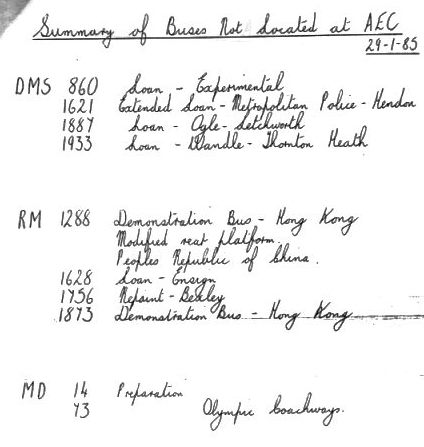 Summary of Buses Not Located at AEC
29-1-85
DMS 860 Loan - Experimental
1621 Extended Loan - Metropolitan Police - Hendon
1887 Loan - Ogle - Letchworth
1933 Loan - Wandle - Thornton Heath
RM 1288 Demonstration Bus - Hong Kong
Modified rear platform.
Peoples Republic of China.
1628 Loan - Ensign
1756 Repaint - Bexley
1873 Demonstration Bus - Hong Kong
MD 14 Preparation
73 Olympic Coachways.